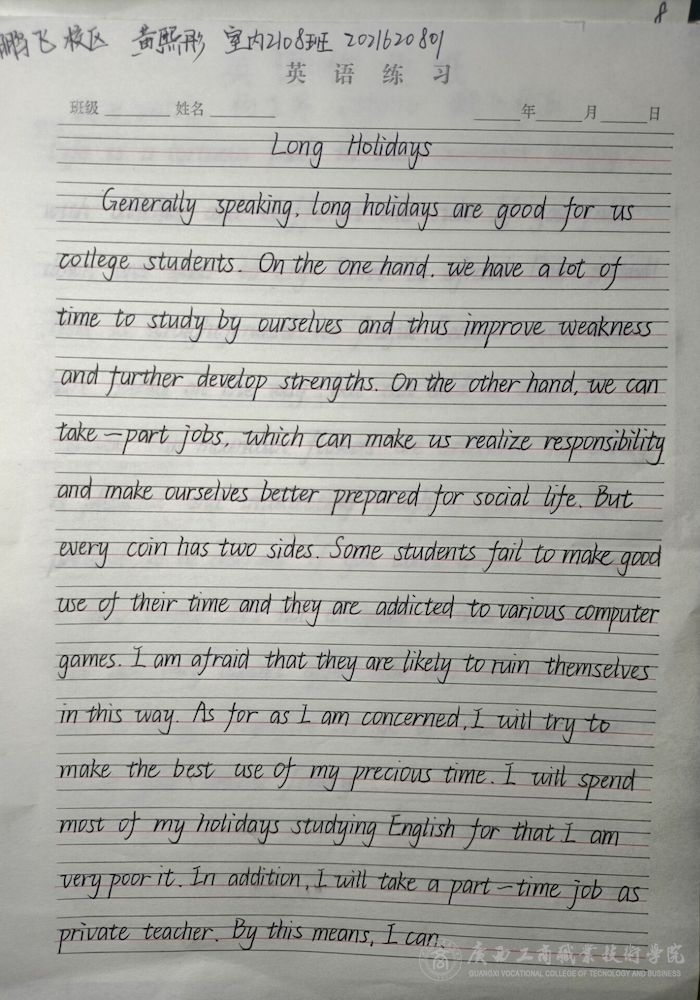 8
鹏飞校区 黄熙彤 室内2108班 2021620801
英语练习
班级 姓名 年 月 日
Long Holidays
Generally speaking, long holidays are good for us
college students. On the one hand, we have a lot of
time to study by ourselves and thus improve weakness
and further develop strengths. On the other hand, we can
take-part jobs, which can make us realize responsibility
and make ourselves better prepared for social life. But
every coin has two sides. Some students fail to make good
use of their time and they are addicted to various computer
games. I am afraid that they are likely to ruin themselves
in this way. As for as I am concerned, I will try to
make the best use of my precious time. I will spend
most of my holidays studying English for that I am
very poor it. In addition, I will take a part-time job as
private teacher. By this means, I can
广西工商职业技术学院
GUANGXI VOCATIONAL COLLEGE OF TECNOLOGY AND BUSINESS